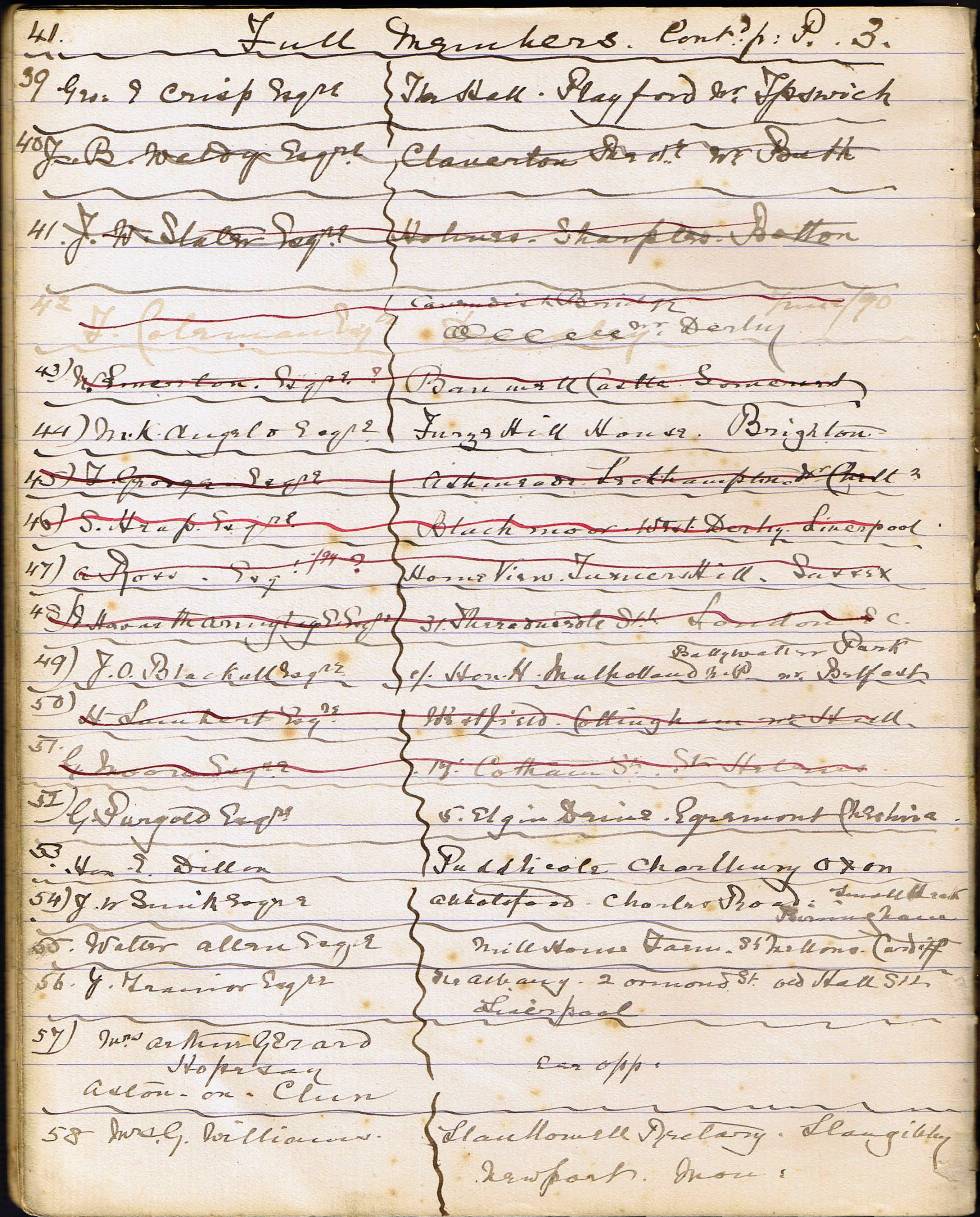 41. Full Members. Cont.d p: P. 3.
39 Geo: E Crisp Esqre The Hall. Playford Nr. Ipswich
40 J.B. Waldy Esqre Claverton Nr Bath
41. J. W. Slater Esqre Holmes. Sharples. Bolton
42 Cavendish Bridge /90
F. Coleman Esqre nr. Derby
43) W. Emerton. Esqre. ? Banwell Castle Somerset
44) M.k Angelo Esqre Furze Hill House. Brighton
45) J. George Esqre Ashmeade Leckhampton Nr Chelt
46) S. Heap. Esqre Blackmoor West Derby. Liverpool
47) A Ross. Esq: /94 ? Home View. Turners Hill. Sussex
48) Haworth Esqre 31. Threadneedle St. London E C.
49) J.O. Blackall Esqre c/. Hon. H. Mulholland M.P. Ballywalter Park nr. Belfast
50) H Lambert Esqre Westfield. Cottingham nr Hull.
51. G Moore Esqre 19. Cotham St. St Helens
52) G. Purgold Esqre 5. Elgin Drive. Egremont Cheshire.
53. Hon. E. Dillon Puddlicote Charlbury Oxon
54) J. W Smith Esqre Abbotsford. Charles Road. Small Heath
Birmingham
55. Walter Allen Esqre Mill House Farm. St Mellons. Cardiff
56. J. Trainor Esqre The Albany. 2 Ormond St. Old Hall St.
Liverpool
57) Mrs Arthur Gerard
Hopesay see opp.
Aston-on-Clun
58 Mrs. G. Williams. Llanllowell Rectory. Llangibby
Newport. Mon: